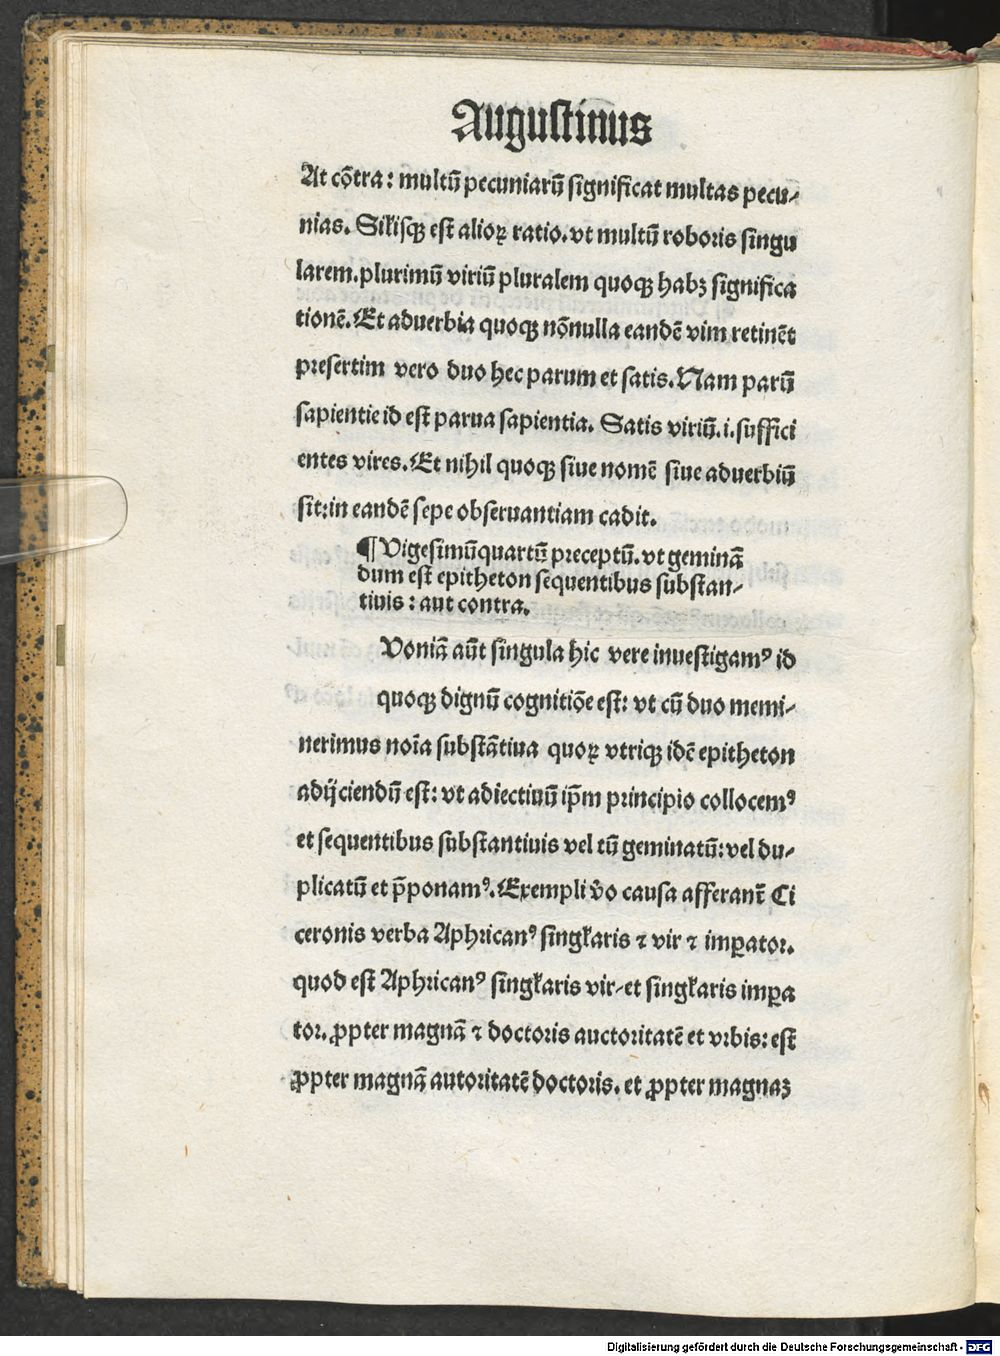 Augustinus
At cōtra: multū pecuniarū significat multas pecu-
nias. Sil̄isqꝫ est alioꝝ ratio. vt multū roboris singu
larem. plurimū viriū pluralem quoqꝫ habꝫ significa
tionē. Et aduerbia quoqꝫ nōnulla eandē vim retinēt
presertim vero duo hec parum et satis. Nam parū
sapientie id est parua sapientia. Satis viriū. i. suffici
entes vires. Et nihil quoqꝫ siue nomē siue aduerbiū
sit: in eandē sepe obseruantiam cadit.
¶ Vigesimūquartū preceptū. vt geminā
dum est epitheton sequentibus substan-
tiuis: aut contra.
Voniā aūt singula hic vere inuestigamꝰ id
quoqꝫ dignū cognitiōe est: vt cū duo memi-
nerimus noīa substātiua quoꝝ vtriqꝫ idē epitheton
adijciendū est: vt adiectiuū ip̄m principio collocemꝰ
et sequentibus substantiuis vel tū geminatū: vel du-
plicatū et p̄ponamꝰ. Exempli v̄o causa afferant̄ Ci
ceronis verba Aphricanꝰ singl̄aris ⁊ vir ⁊ impator.
quod est Aphricanꝰ singl̄aris vir-et singl̄aris impa
tor. ꝓpter magnā ⁊ doctoris auctoritatē et vrbis: est
ꝓpter magnā autoritatē doctoris. et ꝓpter magnaꝫ
Digitalisierung gefördert durch die Deutsche Forschungsgemeinschaft - DFG